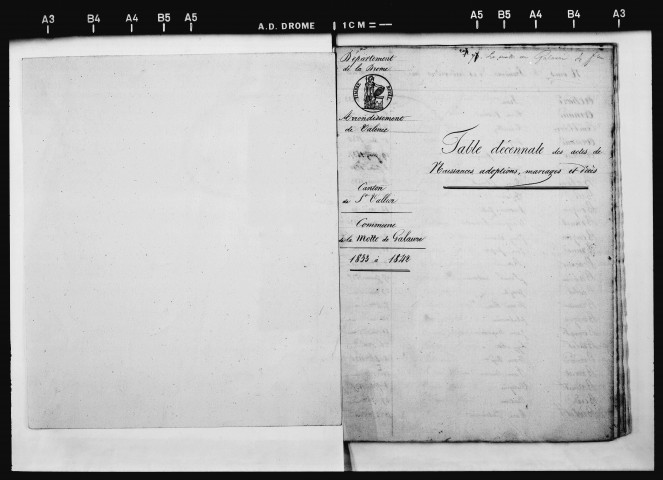 A3 B4 A4 B5 A5 A.D. DROME 1 CM = A5 B5 A4 B4 A3
Département
de la Drome
Arrondissement
de Valence
Canton
de St Vallier
Commune
de la Motte de Galaure
1833 à 1842
Table décennale des actes de
Naissances, adoptions, mariages et décès